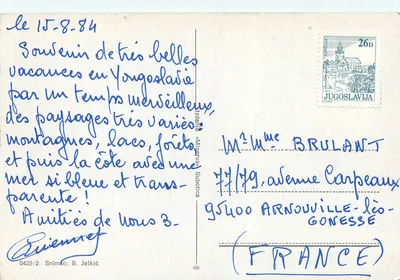 le 15-8-84
Souvenir de très belles
vacances en Yougoslavie
par un temps merveilleux,
des paysages très variés
montagnes, lacs, forêts
et puis la côte avec une
mer si bleue et trans-
parente !
Amitiés de nous 3.
0429/2 Snimio: B. Jelkić
26D
JUGOSLAVIJA
Mr Mme BRULANT
77/79, avenue Carpeaux
95400 ARNOUVILLE-lès-
GONESSE
(FRANCE)